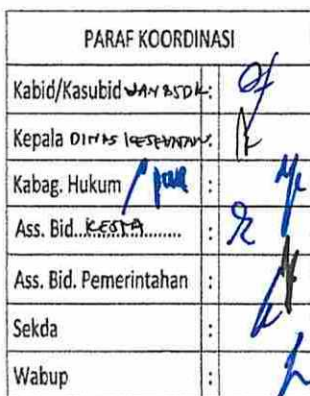 PARAF KOORDINASI
Kabid/Kasubid YAN & SDK :
Kepala DINAS KESEHATAN :
Kabag. Hukum :
Ass. Bid...KESRA.......... :
Ass. Bid. Pemerintahan :
Sekda :
Wabup :